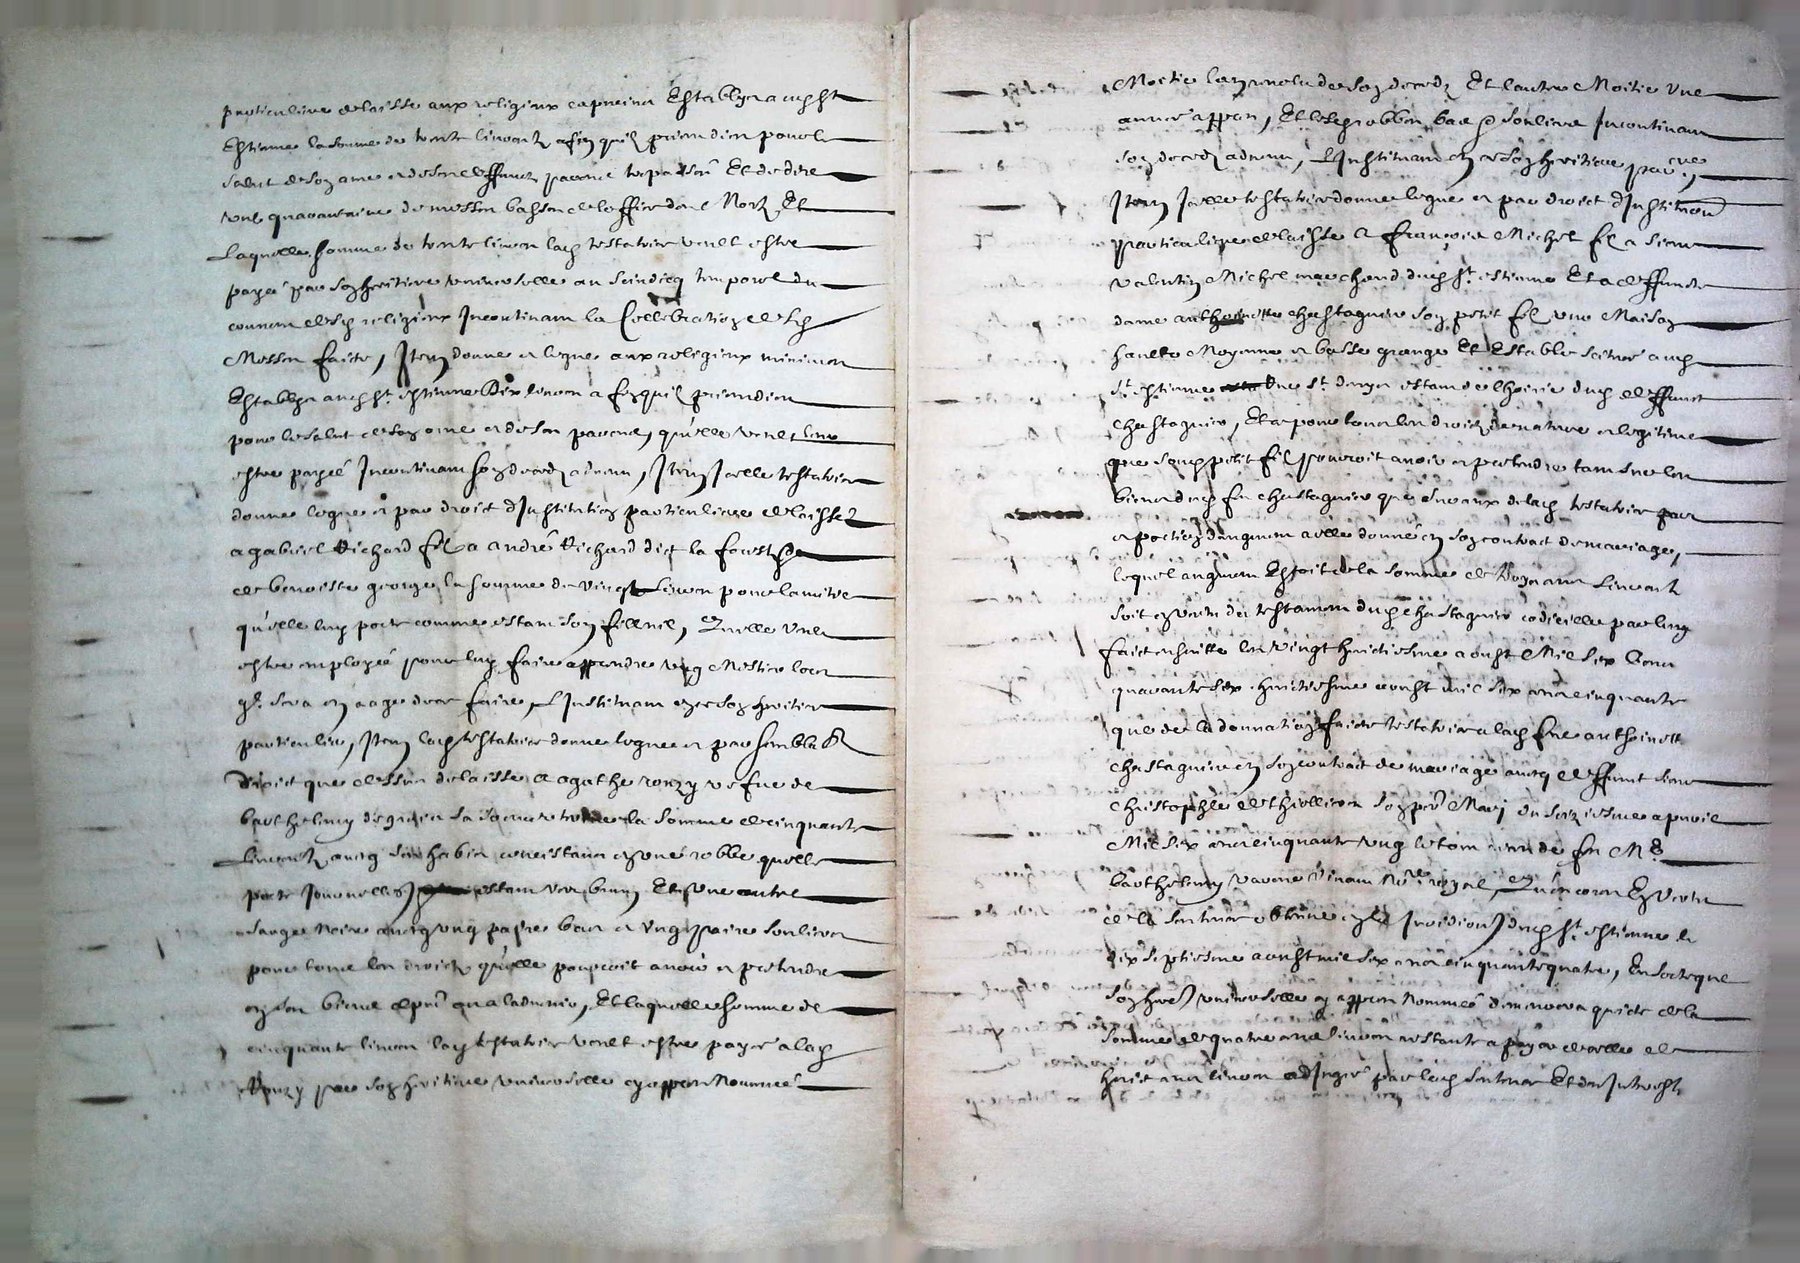 particuliere delaisse aux religieux capucins Establys audt St
Estienne la somme de trente livres afin quilz prient dieu pour le
salut de son ame et de ses deffuncts parens trepassés Et de dire
une quarantaine de messes basses de loffice des Mortz, Et
Laquelle somme de trente livres lad testatrice veult estre
payée par son heritiere universelle au scindicq temporel du
couvent desd religieux Incontinant la Cellebration desd
Messes faicte, Item donne et legue aux religieux minimes
Establys aud St estienne Dix livres afin quilz prient dieu
pour le salut de son ame et de ses parens, qu'elle veult leur
estre payée Incontinant son deceds advenu, Item Icelle testatrice
donne legue et par droict d'Institution particuliere delaisse
a gabriel Richard filz a André Richard dict la forest et
de benoiste george la somme de vingt Livres pour lamitié
qu'elle luy porte comme estant son filleul, Quelle veult
estre employée pour luy faire apprendre ung Mestier lors
ql sera en aage de ce faire, L'Instituant en ce son heritier
particulier, Item lad testatrice donne legue et par semblable
droict que dessus delaisse a agathe ronzy vefve de
barthelemy la somme de cinquante
Livres avecq ses habits consistans en une robbe quelle
porte Journellement estant vert brun, Et une autre
sarge noire avecq ung paire bas et ung paire souliers
pour tous les droictz qu'elle pourroit avoir et pretendre
en ses biens et a ladvenir, Et laquelle somme de
cinquante livres lad testatrice veult estre payée a lad
Ronzy par son heritiere universelle cy appres Nommée
Moitié lannee de son deceds Et lautre Moitié une
année appres, Et lesd robbes bas et souliers Incontinant
son deceds advenu, L'Instituant en ce son heritiere parre,
Item Icelle testatrice donne legue et par droict d'Institution
particuliere delaisse a françois Michel filz a sieur
valentin Michel marchand dud St estienne Et a deffuncte
dame anthoinette chastagnier son petit filz une Maison
haulte Moyenne et basse grange Et Estable scituée aud
St estienne rue St de lhoirie dud deffunct
Chastagnier, Et ce pour tous les droictz de nature et legitime
que sond petit filz pourroit avoir et pretendre tant sur les
biens dud feu chastagnier que sur ceux de lad testatrice part
et portion daugment a elle donné en son contract de mariage,
lequel augment Estoit de la somme de livres
soit en vertu du testament dud chastagnier codicille par luy
faict ensuitte les vingt huictiesme aoust Mil six Cens
quarante six huictiesme aoust mil six cens cinquante
que de la donnation faicte testatrice a lad feue anthoinette
chastagnier en son contract de mariage avecq deffunct sieur
Christophle dethiollieres son per Mary du seiziesme apvril
Mil six cens cinquante ung feu Me
barthelemy vivant Nore royal, Qu'encores En vertu
de la sentence obtenue en la Juridion dud St estienne le
dix septiesme aoust mil six cens cinquante quatre, En sorte que
son here universelle cy appres Nommée demeurera quicte de la
somme de quatre cens livres restante a payer de celle de
huict cens livres adjugée par lad sentence Et des Interestz